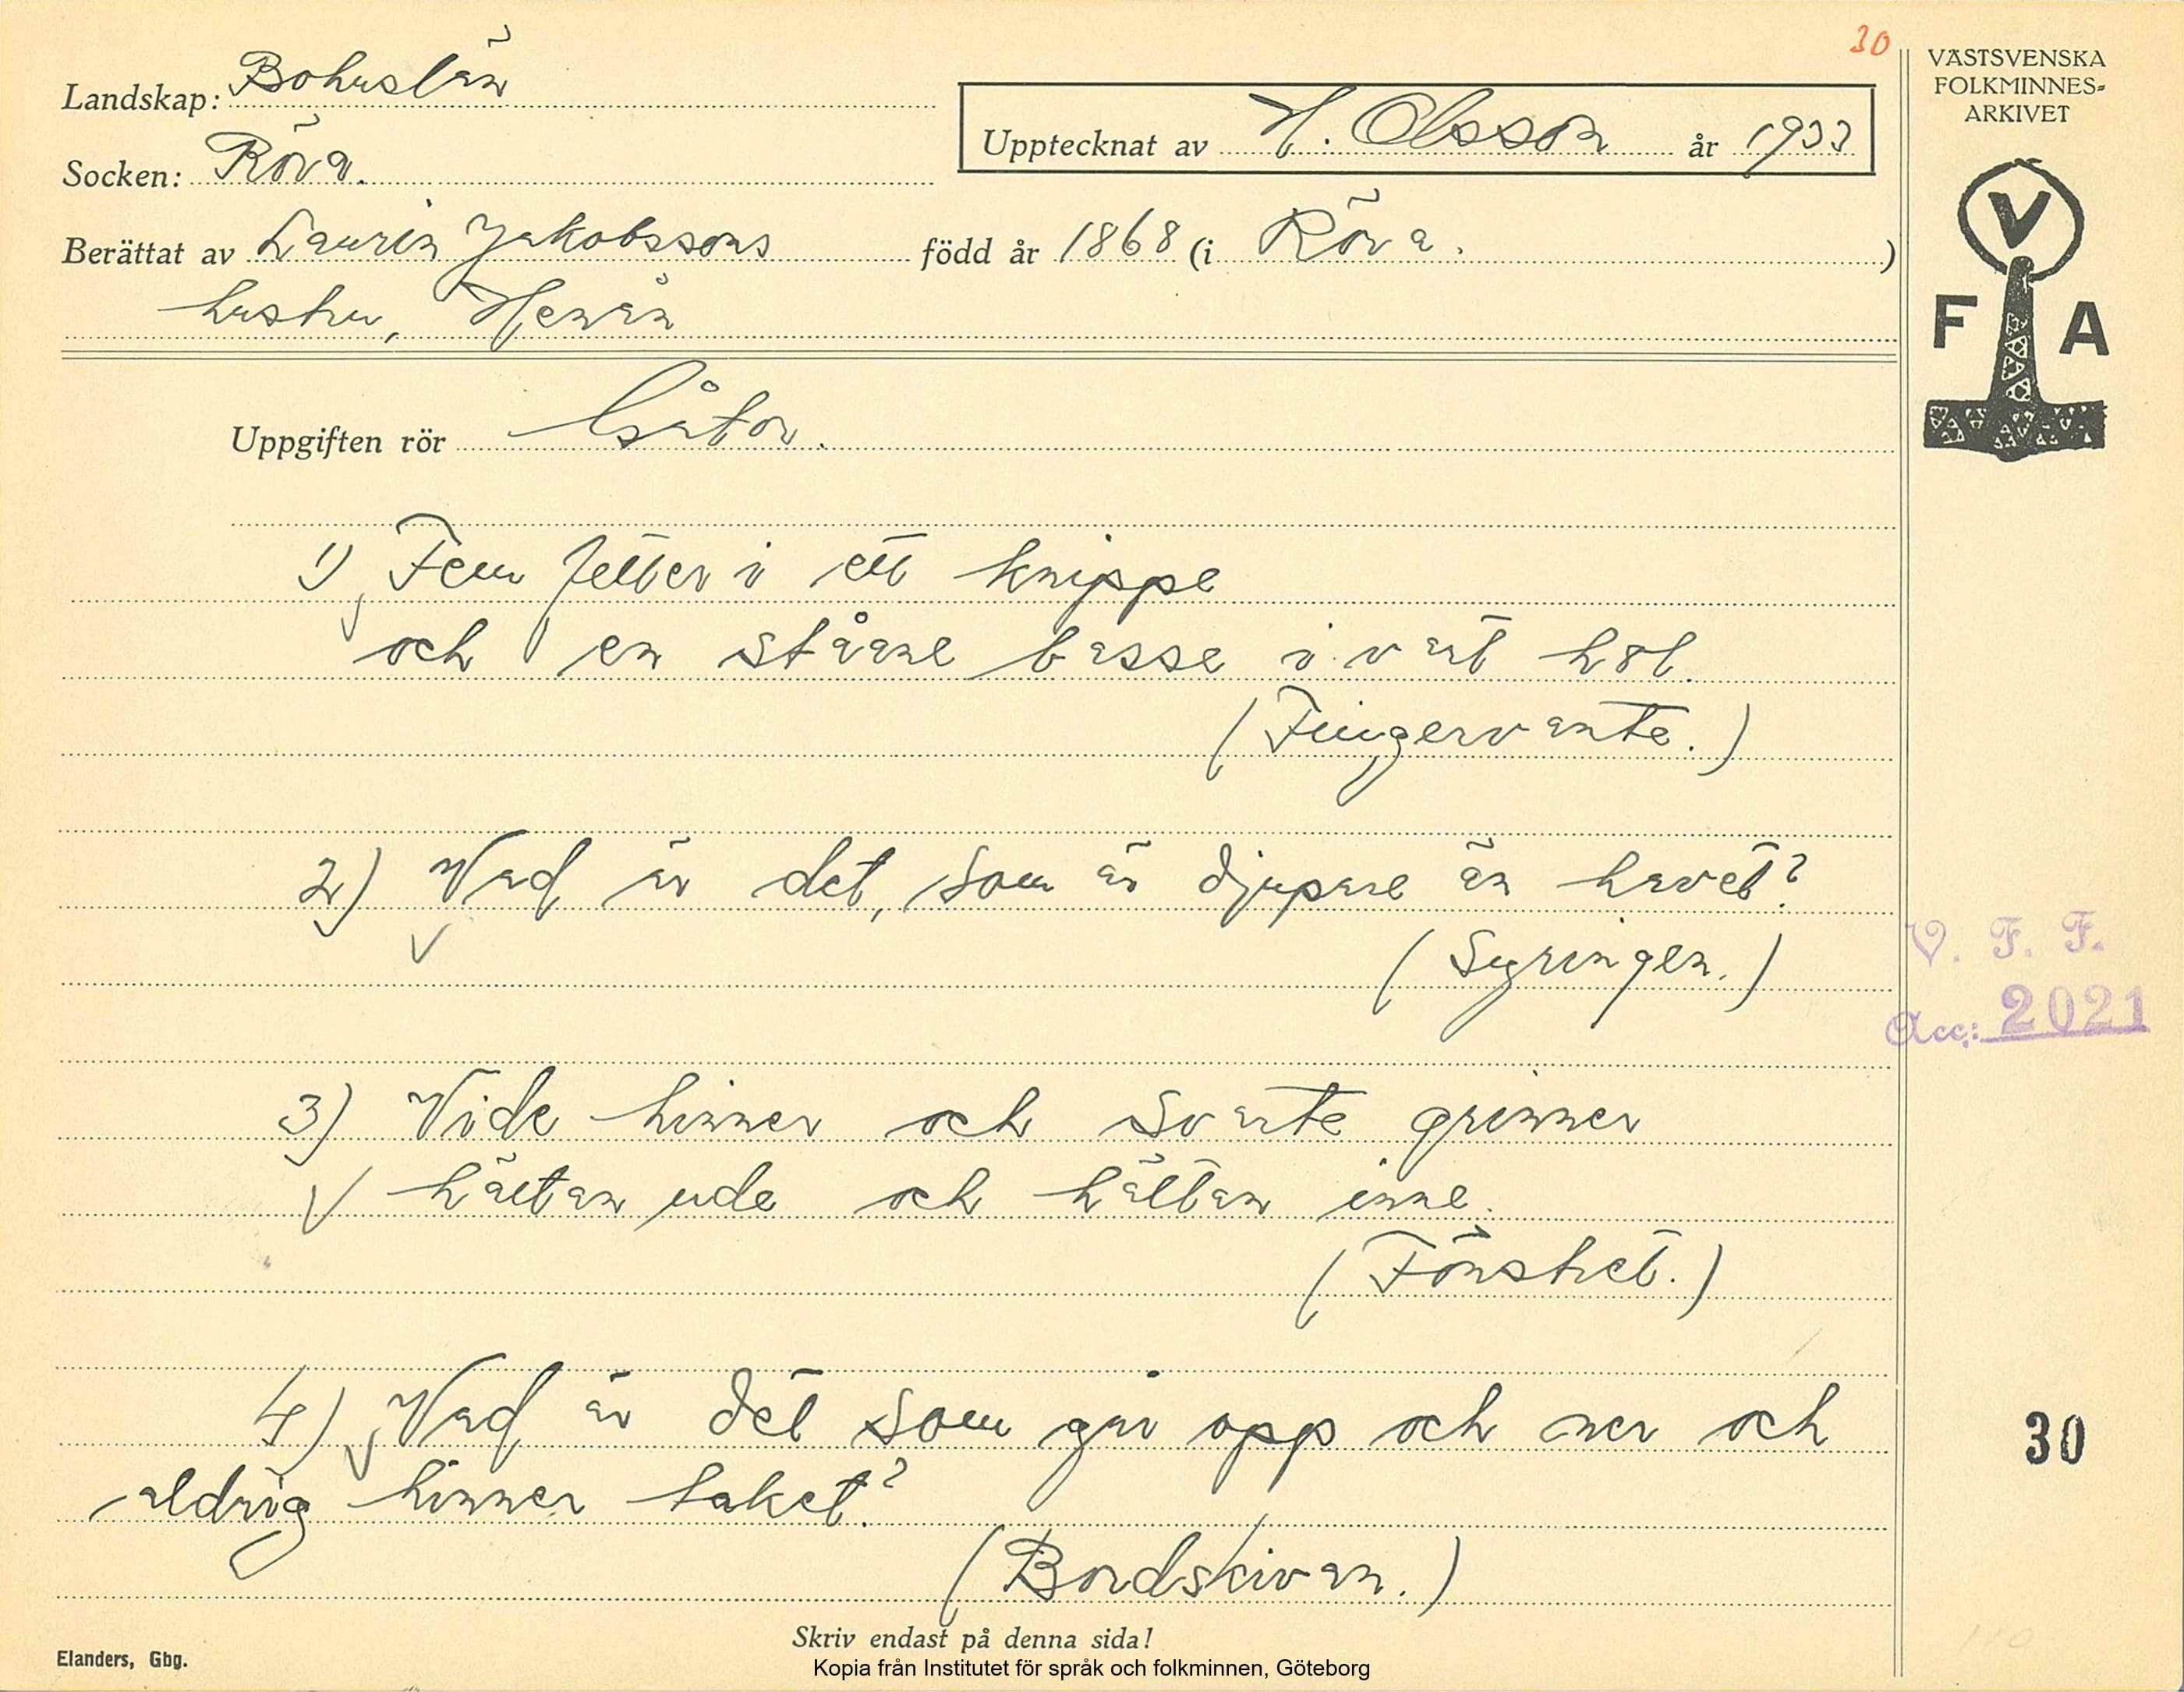 30
VÄSTSVENSKA
FOLKMINNES=
ARKIVET
Landskap: Bohuslän
Upptecknat av H. Olsson år 1933
Socken: Röra.
Berättat av Laurin Jakobssons född år 1868 (i Röra.)
hustru, Henån
V
F A
Uppgiften rör Gåtor.
1) Fem fetter i ett knippe
och en stååne basse i vart hol.
(Fingervante.)
2) Vad är det, som är djupare än havet?
(Syringen.)
V. F. F.
Acc: 2021
3) Vide hinner och svarte grinner
hättan ude och hättan inne.
(Fönstret.)
4) Vad är det som går opp och ner och
aldrig hinner taket?
30
(Bordskivan.)
Skriv endast på denna sida!
Elanders, Gbg.
Kopia från Institutet för språk och folkminnen, Göteborg